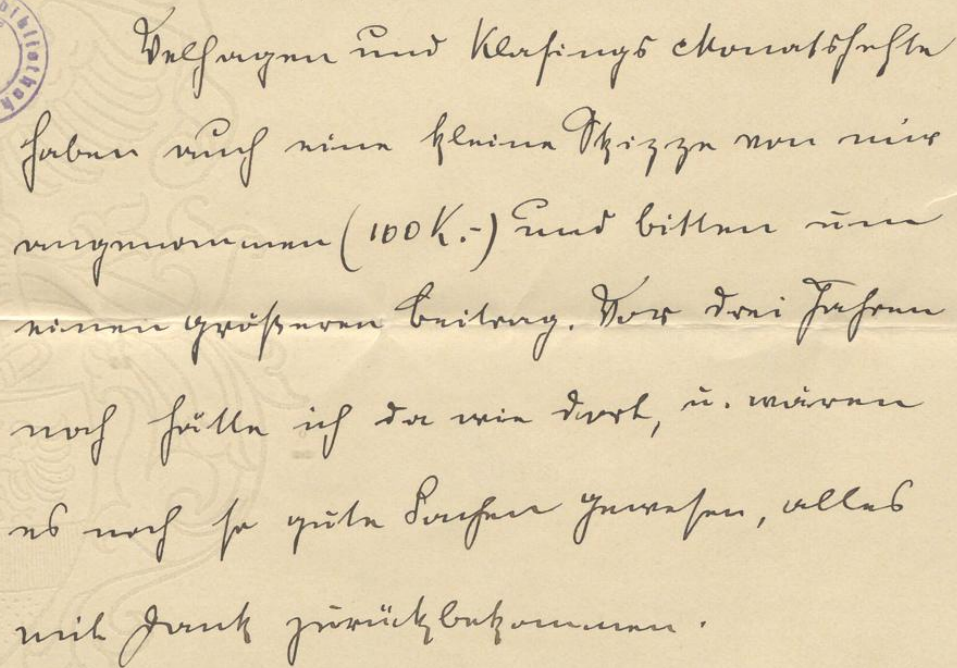 bibliothek
Velhagen und Klasings Monatshefte
haben auch eine kleine Skizze von mir
angenommen (100 K.-) und bitten um
einen größeren Beitrag. Vor drei Jahren
noch hätte ich da wie dort, u. wären
es noch so gute Sachen gewesen, alles
mit Dank zurückbekommen.